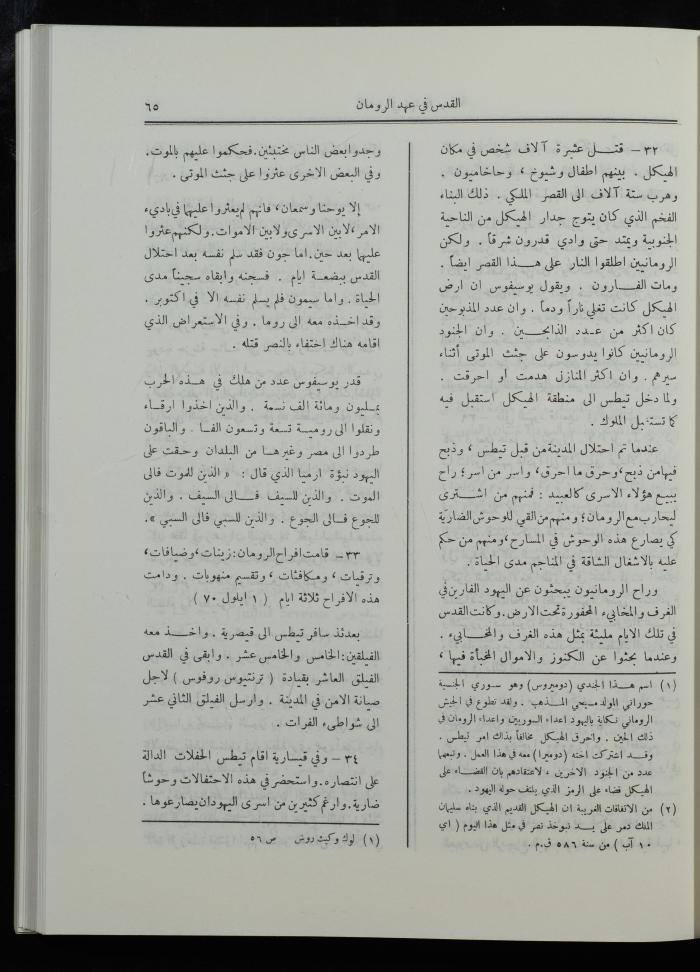 القدس في عهد الرومان
٦٥
٣٢ – قتـــل عشرة آلاف شخص في مكان
الهيكل . بينهم اطفال وشيوخ ، وحاخاميون .
وهرب ستة آلاف الى القصر الملكي . ذلك البناء
الفخم الذي كان يتوج جدار الهيكل من الناحية
الجنوبية ويمتد حتى وادي قدرون شرقاً . ولكن
الرومانيين اطلقوا النار على هـــذا القصر ايضاً .
ومات الفـــارون . ويقول يوسيفوس ان ارض
الهيكل كانت تغلي ناراً ودماً . وان عدد المذبوحين
كان اكثر من عـدد الذابحـين . وان الجنود
الرومانيين كانوا يدوسون على جثث الموتى أثناء
سيرهم . وان اكثر المنازل هدمت أو احرقت .
ولما دخل تيطس الى منطقة الهيكل استقبل فيه
كما تستقبل الملوك .
عندما تم احتلال المدينة من قبل تيطس ، وذبح
فيها من ذبح، وحرق ما احرق، واسر من اسر؛ راح
يبيع هؤلاء الاسرى كالعبيد : فمنهم من اشـترى
ليحارب مع الرومان؛ ومنهم من القي للوحوش الضارية
كي يصارع هذه الوحوش في المسارح، ومنهم من حكم
عليه بالاشغال الشاقة في المناجم مدى الحياة .
وراح الرومانيون يبحثون عن اليهود الفارين في
الغرف والمخابيء المحفورة تحت الارض. وكانت القدس
في تلك الايام مليئة بمثل هذه الغرف والمخــابيء .
وعندما بحثوا عن الكنوز والاموال المخبأة فيها ،
(١) اسم هــذا الجندي (دوميروس) وهو سـوري الجنسية
حوراني المولد مسيحي المـذهب . ولقد تطوع في الجيش
الروماني نكاية باليهود اعداء السوريين واعداء الرومان في
ذلك الحين . واحرق الهيكل مخالفاً بذاك امر تيطس .
وقـد اشتركت اخته (دوميرا) معه في هذا العمل . وتبعهما
عدد من الجنود الاخرين . لاعتقادهم بان القضـاء على
الهيكل قضاء على الرمز الذي يلتف حوله اليهود .
(٢) من الاتفاقات الغريبة ان الهيكل القديم الذي بناه سليمان
الملك دمر على يـــد نبوخذ نصر في مثل هذا اليوم ( اي
١٠ آب ) من سنة ٥٨٦ ق.م .
وجدوا بعض الناس مختبئين. فحكموا عليهم بالموت.
وفي البعض الاخرى عثروا على جثث الموتى .
إلا يوحنا وسمعان، فانهم لم يعثروا عليهما في باديء
الامر، لا بين الاسرى ولا بين الاموات. ولكنهم عثروا
عليهما بعد حين. اما جون فقد سلم نفسه بعد احتلال
القدس ببضعة ايام . فسجنه وابقاه سجيناً مدى
الحياة . واما سيمون فلم يسلم نفسه الا في اكتوبر .
وقد اخــذه معه الى روما . وفي الاستعراض الذي
اقامه هناك احتفاء بالنصر قتله .
قدر يوسيفوس عدد من هلك في هــذه الحرب
بمـليون ومائة الف نسمة . والذين اخذوا ارقــاء
ونقلوا الى روميـة تسعة وتسعون الفـا . والباقون
طردوا الى مصر وغيرهـا من البلدان وحـقت على
اليهود نبوّة ارميا الذي قال : « الذين للموت فالى
الموت . والذين للسيف فــالى السيف . والذين
للجوع فــالى الجوع . والذين للسبي فالى السبي ».
٣٣ – قامت افراح الرومان: زينات، وضيافات،
وترقيات ، ومكافئات ، وتقسيم منهوبات . ودامت
هذه الافراح ثلاثة ايام ( ١ ايلول ٧٠ )
بعدئذ سافر تيطس الى قيصرية . واخــذ معه
الفيلقين: الخامس والخامس عشر . وابقى في القدس
الفيلق العاشر بقيادة ( ترنتيوس روفوس ) لاجل
صيانة الامن في المدينة . وارسل الفيلق الثاني عشر
الى شواطيء الفرات .
٣٤ – وفي قيسارية اقام تيطس الحفلات الدالة
على انتصاره. واستحضر في هذه الاحتفالات وحوشاً
ضارية. وارغم كثيرين من اسرى اليهود ان يصارعوها .
(١) لوك وكيث روش ص ٥٦